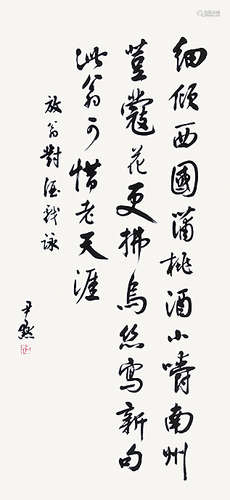 細傾西國蒲桃酒小嚼南州
荳蔻花更拂烏絲寫新句
此翁可惜老天涯
放翁對酒戲詠
尹默